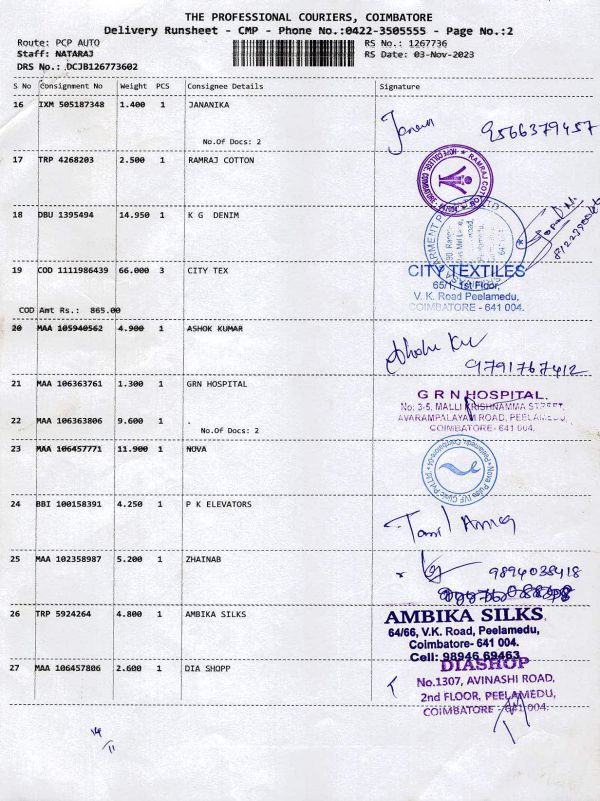 THE PROFESSIONAL COURIERS, COIMBATORE
Delivery Runsheet - CMP - Phone No.:0422-3505555 - Page No.:2
Route: PCP AUTO RS No.: 1267736
Staff: NATARAJ RS Date: 03-Nov-2023
DRS No.: DCJB126773602
S No Consignment No Weight PCS Consignee Details Signature
16 IXM 505187348 1.400 1 JANANIKA
9566379457
No.Of Docs: 2
17 TRP 4268203 2.500 1 RAMRAJ COTTON
RAMRAJ COTTON
18 DBU 1395494 14.950 1 K G DENIM
19 COD 1111986439 66.000 3 CITY TEX
CITY TEXTILES
65/1, 1st Floor,
V. K. Road Peelamedu,
COIMBATORE - 641 004.
COD Amt Rs.: 865.00
20 MAA 105940562 4.900 1 ASHOK KUMAR
9791767412
21 MAA 106363761 1.300 1 GRN HOSPITAL
G R N HOSPITAL.
No: 3-5, MALLI KRISHNAMMA STREET,
AVARAMPALAYAM ROAD, PEELAMEDU,
COIMBATORE- 641 004.
22 MAA 106363806 9.600 1 .
No.Of Docs: 2
23 MAA 106457771 11.900 1 NOVA
24 BBI 100158391 4.250 1 P K ELEVATORS
25 MAA 102358987 5.200 1 ZHAINAB
9894038418
26 TRP 5924264 4.800 1 AMBIKA SILKS
AMBIKA SILKS.
64/66, V.K. Road, Peelamedu,
Coimbatore- 641 004.
Cell: 98946 69463
27 MAA 106457806 2.600 1 DIA SHOPP
DIASHOP
No.1307, AVINASHI ROAD,
2nd FLOOR, PEELAMEDU,
COIMBATORE - 641 004.